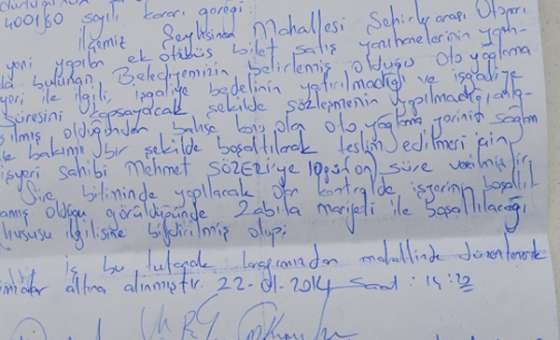 4001/60 sayılı kararı gereği:
ilçemiz Mahallesi Şehirlerarası Otogarı
yeni yapılan ek otobüs bilet satış yazıhanelerinin yanı-
bulunan, Belediyemizin belirlemiş olduğu oto yağlama
yeri ile ilgili, işgaliye bedelinin yatırılmadığı ve işgaliye
süresini kapsayacak şekilde sözleşmenin yapılmadığı anla-
şılmış olduğundan bahse konu olan oto yağlama yerinin sağlam
ve bakımlı bir şekilde boşaltılarak teslim edilmesi için
işyeri sahibi Mehmet SÖZERİ'ye 10 gün (on) süre verilmiştir.
Süre bitiminde yapılacak olan kontrolde işyerinin boşaltıl-
amış olduğu görüldüğünde Zabıta marifeti ile boşaltılacağı
hususu ilgilisine bildirilmiş olup;
iş bu tutanak tarafımızdan mahallinde düzenlenerek
imza altına alınmıştır. 22-01-2014 Saat: 14:22